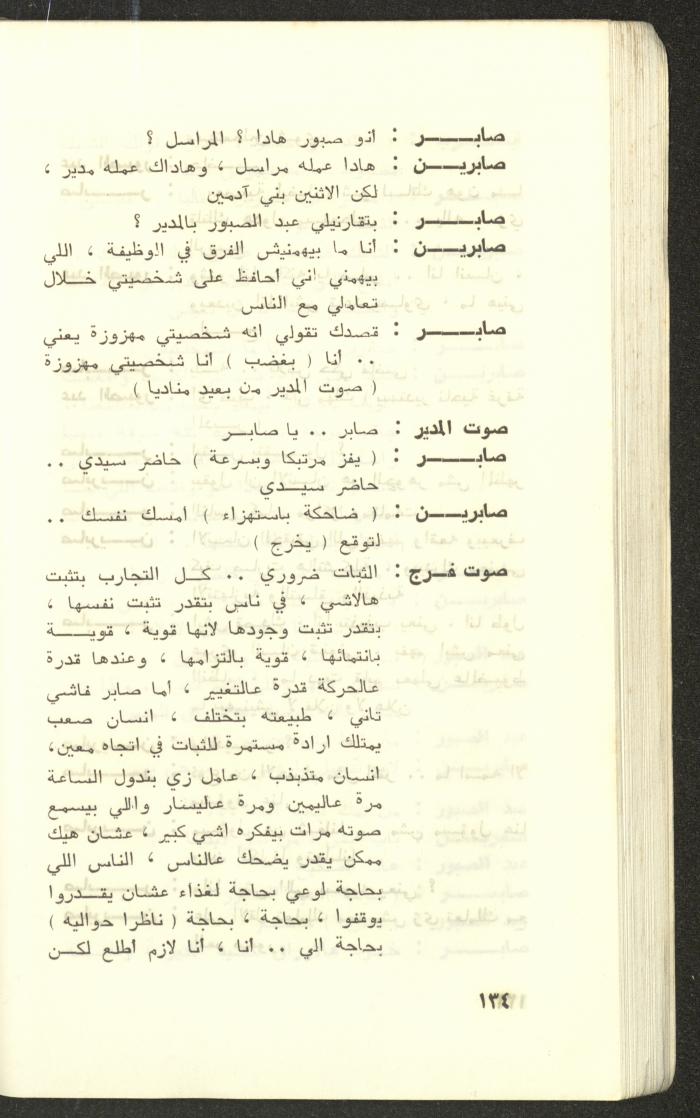 صابـــــر : انو صبور هادا ؟ المراسل ؟
صابريـــن : هادا عمله مراسل ، وهاداك عمله مدير ،
لكن الاثنين بني آدمين
صابـــــر : بتقارنيلي عبد الصبور بالمدير ؟
صابريـــن : أنا ما بيهمنيش الفرق في الوظيفة ، اللي
بيهمني اني احافظ على شخصيتي خـــلال
تعاملي مع الناس
صابـــــر : قصدك تقولي انه شخصيتي مهزوزة يعني
.. أنا ( بغضب ) أنا شخصيتي مهزوزة
( صوت المدير من بعيد مناديا )
صوت المدير : صابر .. يا صابـــر
صابـــــر : ( يفز مرتبكا وبسرعة ) حاضر سيدي ..
حاضر سيـــدي
صابريـــن : ( ضاحكة باستهزاء ) امسك نفسك ..
لتوقع ( يخرج )
صوت فـرج : الثبات ضروري .. كـــل التجارب بتثبت
هالاشي ، في ناس بتقدر تثبت نفسها ،
بتقدر تثبت وجودها لانها قوية ، قويـــة
بانتمائها ، قوية بالتزامها ، وعندها قدرة
عالحركة قدرة عالتغيير ، أما صابر فاشي
تاني ، طبيعته بتختلف ، انسان صعب
يمتلك ارادة مستمرة للثبات في اتجاه معين،
انسان متذبذب ، عامل زي بندول الساعة
مرة عاليمين ومرة عاليسار واللي بيسمع
صوته مرات بيفكره اشي كبير ، عشان هيك
ممكن يقدر يضحك عالناس ، الناس اللي
بحاجة لوعي بحاجة لغذاء عشان يقـــدروا
يوقفوا ، بحاجة ، بحاجة ( ناظرا حواليه )
بحاجة الي .. أنا ، أنا لازم أطلع لكـــن
١٣٤